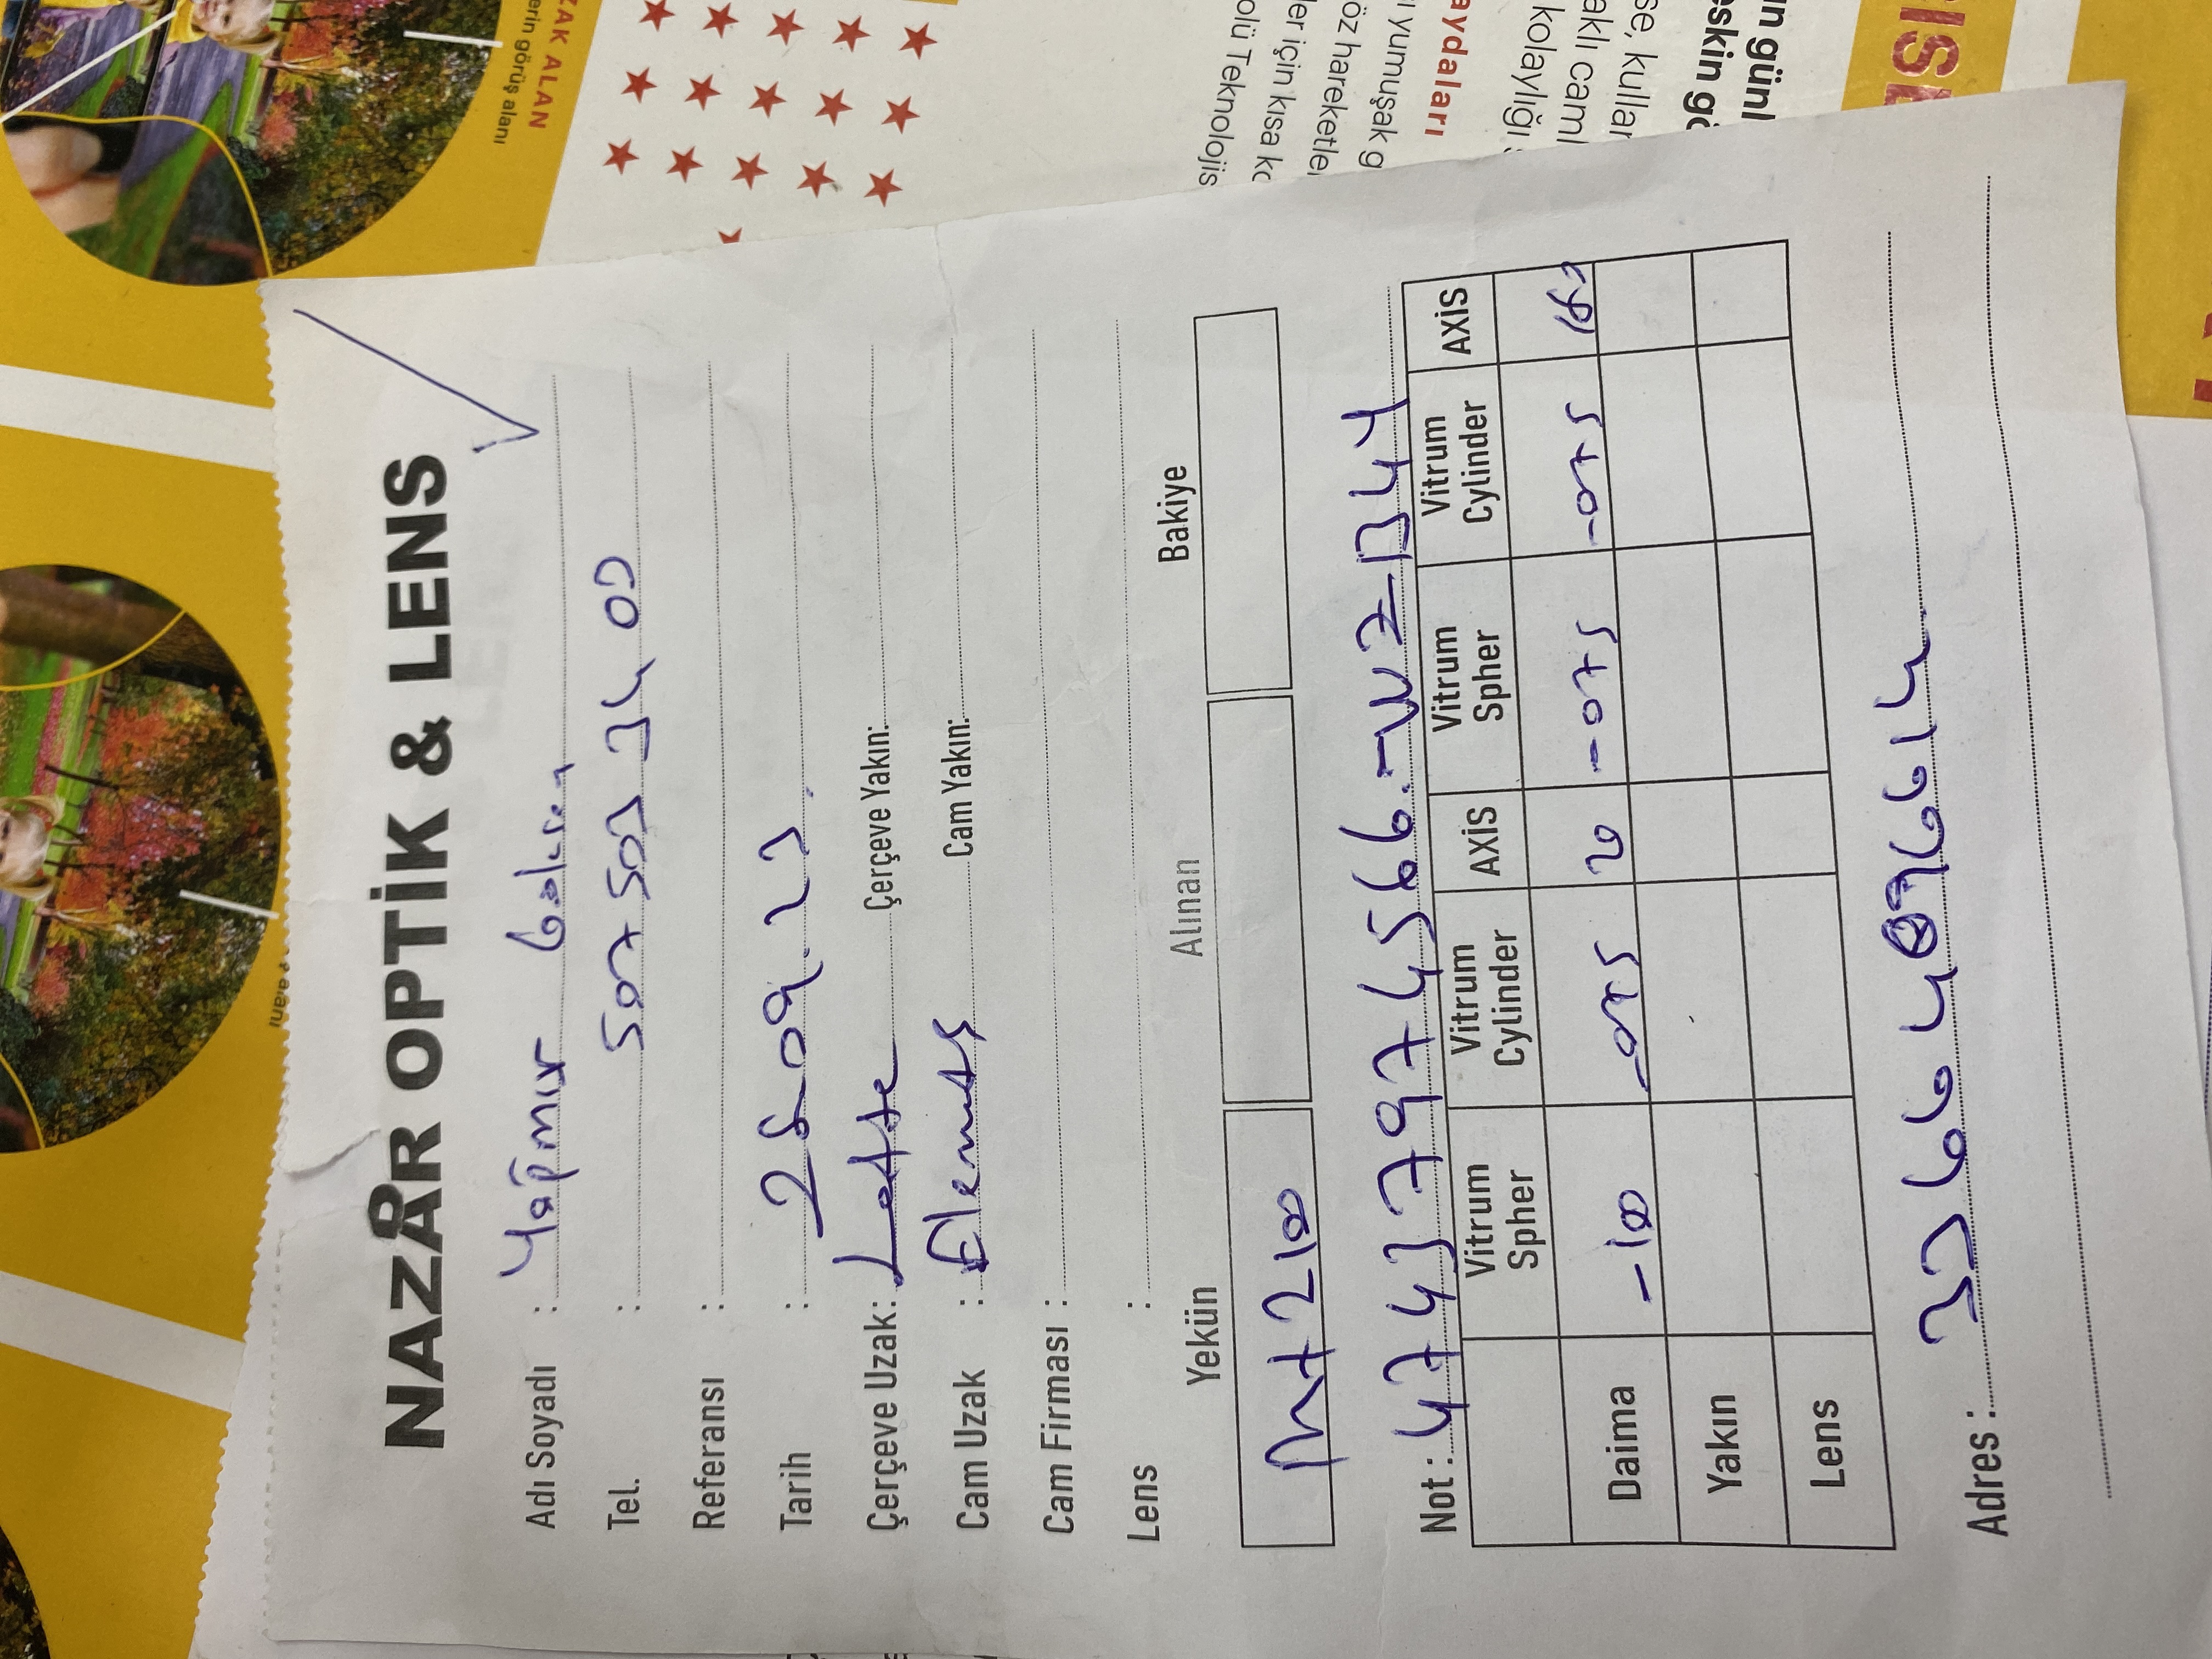 NAZAR OPTİK & LENS
Adı Soyadı : Yağmur Gökçen
Tel. : 507 503 34 00
Referansı :
Tarih : 28 09. 23.
Çerçeve Uzak: Çerçeve Yakın:
Cam Uzak : Cam Yakın:
Cam Firması :
Lens :
Yekün Alınan Bakiye
2100
Not : 47437974566.-WZB44
Vitrum Spher Vitrum Cylinder AXİS Vitrum Spher Vitrum Cylinder AXİS
Daima -100 -075 20 -075 -075
Yakın
Lens
Adres :
erin görüş alanı
ZAK ALAN
olü Teknolojis
er için kısa ko
öz hareketler
ı yumuşak g
aydaları
kolaylığı
aklı caml
se, kullan
eskin gö
ın günl